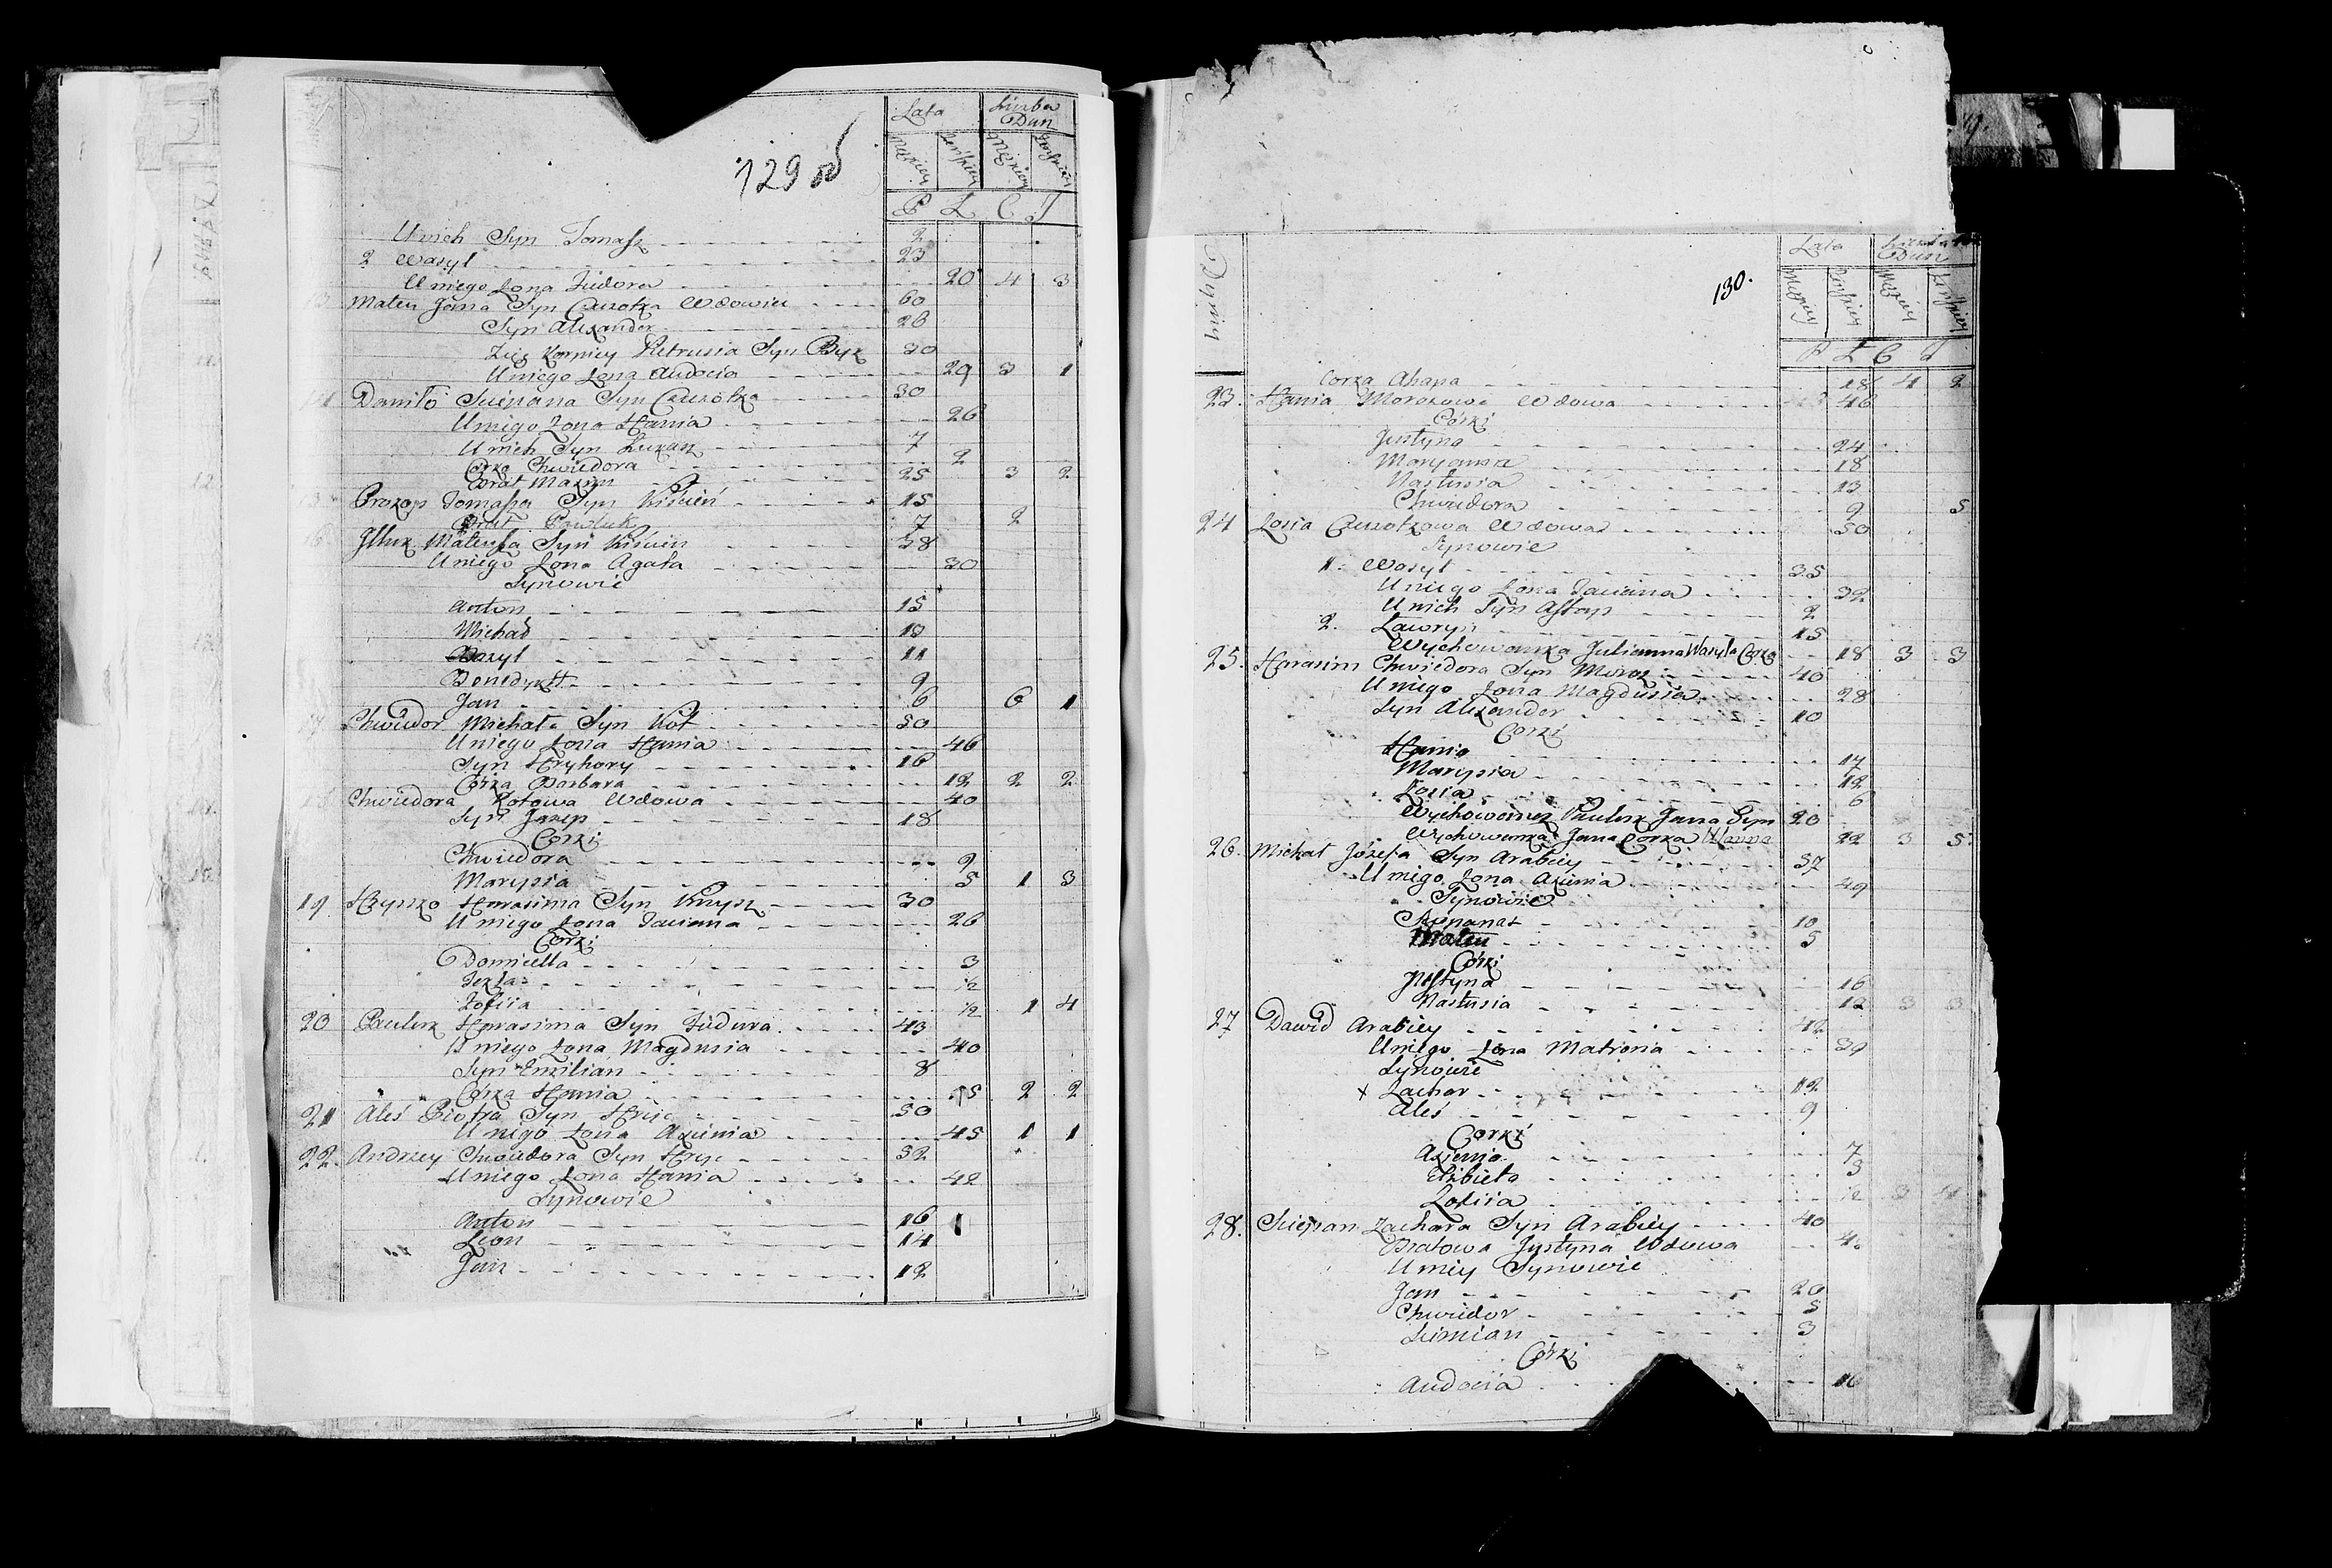 129 об
Lata Liczba Dusz
Męzkiey Żeńskiey Męzkiey Żeńskiey
P L C T
U nich Syn Tomasz 2
2 Wasyl 23
U niego Żona Fiedora 20 4 3
Mateu Jana Syn Wdowiec 60
Syn Alexander 26
Zięc Korniey Pietrusia Syn Byk 30
U niego Żona Audocia 29 3 1
Daniło Sciepana Syn 30
U niego Żona Hania 26
U nich Syn Łukasz 7
Corka Chwiedora 2
Brat Maxym 25 3 2
Prokop Tomasza Syn Kiścień 15
Brat Pawluk 7 2
Mateusza Syn Kiścień 38
U niego Żona Agata 30
Synowie
Anton 15
Michał 13
Bazyl 11
Benedykt 9
Jan 6 6 1
17 Chwiedor Michała Syn Kot 50
U niego Żona Hania 46
Syn Hryhory 16
Córka Barbara 12 2 2
18 Chwiedora Kotowa Wdowa 40
Syn Jozep 18
Corki
Chwiedora 9
Marysia 5 1 3
19 Hryszko Harasima Syn 30
U niego Żona Taciana 26
Corki
Domicella 3
Tekla 1/2
Zofiia 1/2 1 4
20 Pauluk Harasima Syn Fiedura 43
U niego Żona Magdusia 40
Syn Emilian 8
Córka Hania 15 2 2
21 Aleś Piotra Syn 50
U niego Żona Axienia 45 1 1
22 Andrzey Chwiedora Syn 32
U niego Żona Hania 42
Synowie
Anton 16
Leon 14
Jan 12
130.
Dymy
Lata Liczba Dusz
Męzkiey Żeńskiey Męzkiey Żeńskiey
P L C T
Corka Ahapa 18 4 2
23. Hania Morozowa Wdowa 46
Córki
Justyna 24
Maryanna 18
Nastusia 13
Chwiedora 9 5
24 Zosia Wdowa 50
Synowie
1. Wasyl 35
U niego Żona Taciana 32
U nich Syn Astap 2
2. Ławryn 15
Wychowanka Julianna Wasyla Corka 18 3 3
25. Harasim Chwiedora Syn Moroz 40
U niego Żona Magdusia 28
Syn Alexander 10
Corki
Hania 17
Marysia 12
Zosia 6
Wychowaniec Pauluk Jana Syn 20
Wychowanka Jana Corka Hanna 22 3 5
26. Michał Józefa Syn Arabiey 57
U niego Żona Axienia 49
Synowie
Sciepanas 10
Mateu 5
Córki
Justyna 16
Nastusia 12 3 3
27 Dawid Arabiey 42
U niego Żona Matrona 39
Synowie
x Zachar 12
Aleś 9
Corki
Axienia 7
Elżbieta 3
Zofiia 1/2 3 4
28. Sciepan Zachara Syn Arabiey 40
Bratowa Justyna Wdowa
U niey Synowie
Jan 20
Chwiedor 5
Simian 3
Córki
Audocia 16